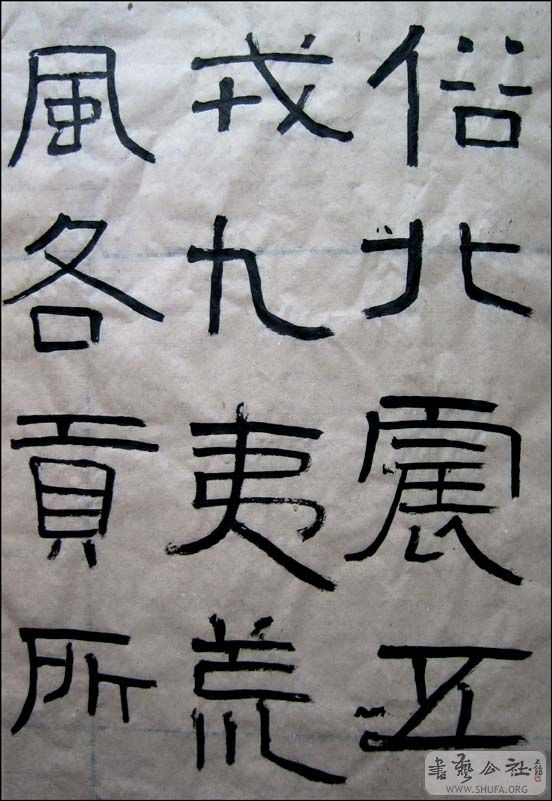 俗北震五
戎九夷荒
風各貢所
書藝公社
WWW.SHUFA.ORG